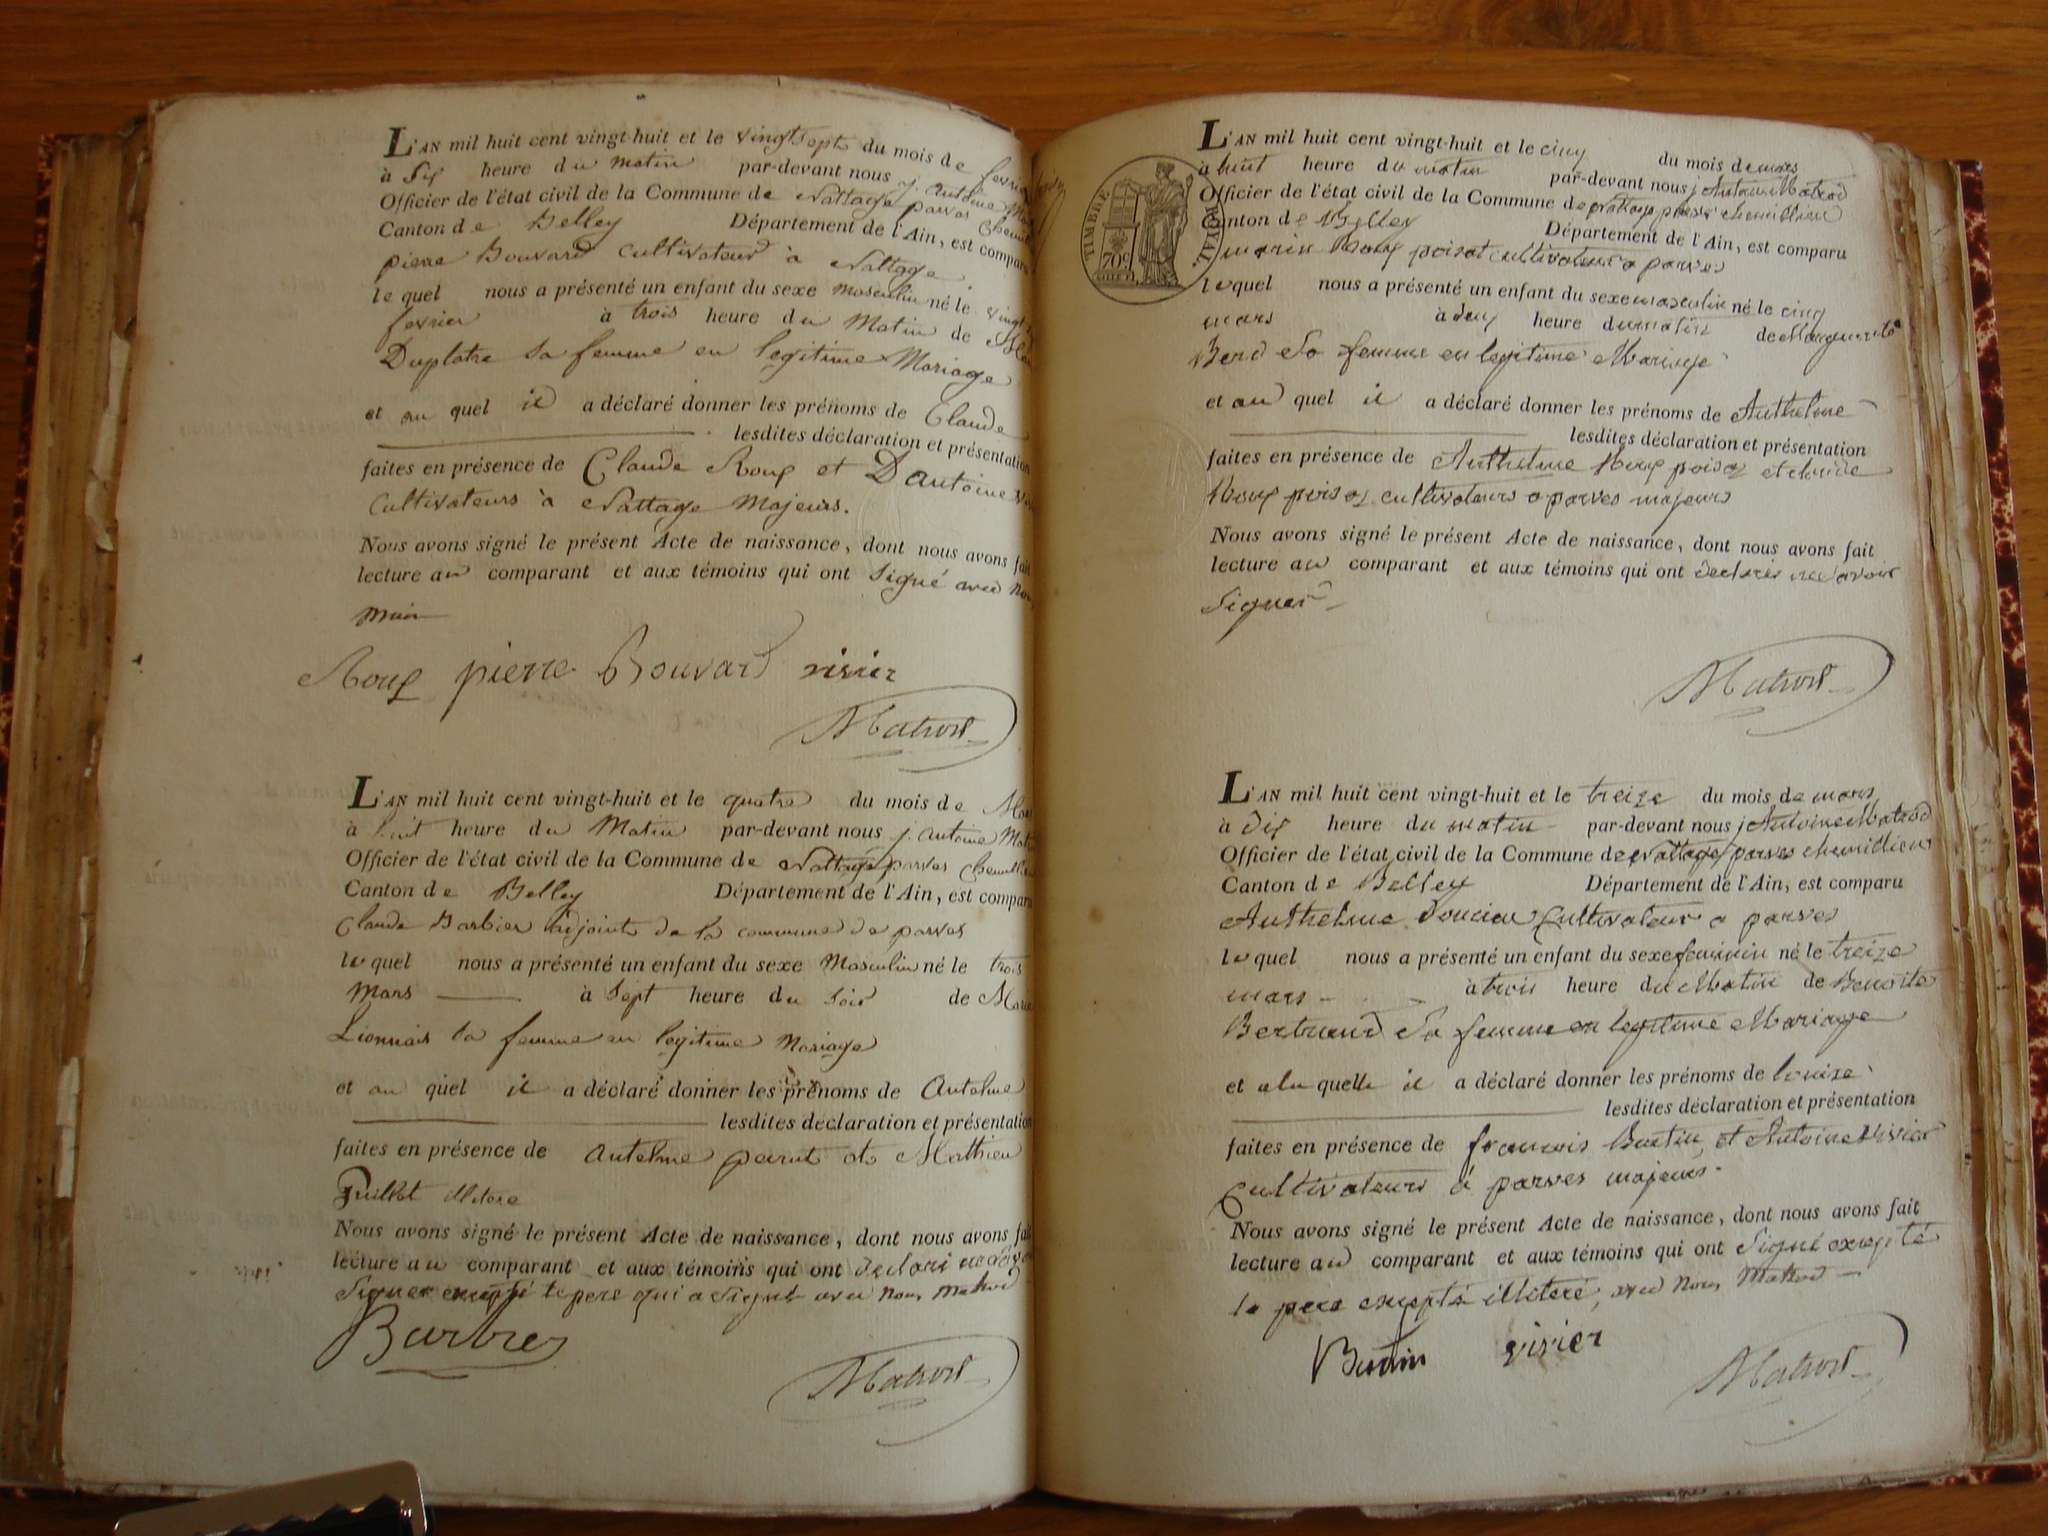 L'AN mil huit cent vingt-huit et le vingt sept du mois de fevrier
à Six heure du matin par-devant nous j. antoine
Officier de l'état civil de la Commune de Nattage parves
Canton de Belley Département de l'Ain, est comparu
pierre Bouvard cultivateur à Nattage
le quel nous a présenté un enfant du sexe masculin né le vingt
fevrier à trois heure du Matin de
Duplatre sa femme en legitime Mariage
et au quel il a déclaré donner les prénoms de Claude
lesdites déclaration et présentation
faites en présence de Claude Roux et D antoine
Cultivateurs à Nattage Majeurs.
Nous avons signé le présent Acte de naissance, dont nous avons fait
lecture au comparant et aux témoins qui ont Signé avec nous
Roux pierre Bouvard vivier
Matrod
L'AN mil huit cent vingt-huit et le quatre du mois de Mars
à huit heure du Matin par-devant nous j. antoine
Officier de l'état civil de la Commune de Nattage parves
Canton de Belley Département de l'Ain, est comparu
Claude Barbier adjoint de la commune de parves
le quel nous a présenté un enfant du sexe Masculin né le trois
Mars à Sept heure du Soir de Marie
Lionnais sa femme en legitime Mariage
et au quel il a déclaré donner les prénoms de Antelme
lesdites déclaration et présentation
faites en présence de Antelme parut et Mathieu
Guillot
Nous avons signé le présent Acte de naissance, dont nous avons fait
lecture au comparant et aux témoins qui ont declaré
Signer excepté le pere qui a Signé avec nous Matrod
Barbier
Matrod
TIMBRE ROYAL
70c
L'AN mil huit cent vingt-huit et le cinq du mois de mars
à huit heure du matin par-devant nous j Antoine Matrod
Officier de l'état civil de la Commune de Nattage parves chemillieu
Canton de Belley Département de l'Ain, est comparu
marin Roux poisat cultivateur a parves
le quel nous a présenté un enfant du sexe masculin né le cinq
mars à deux heure du matin de Marguerite
Bend Sa femme en legitime Mariage
et au quel il a déclaré donner les prénoms de Anthelme
lesdites déclaration et présentation
faites en présence de Anthelme Roux et
Roux cultivateurs a parves majeurs
Nous avons signé le présent Acte de naissance, dont nous avons fait
lecture au comparant et aux témoins qui ont
Signer
Matrod
L'AN mil huit cent vingt-huit et le treize du mois de mars
à dix heure du matin par-devant nous j Antoine Matrod
Officier de l'état civil de la Commune de Nattage parves chemillieu
Canton de Belley Département de l'Ain, est comparu
Anthelme Cultivateur a parves
le quel nous a présenté un enfant du sexe feminin né le treize
mars à trois heure du Matin de Benoite
Bertrand Sa femme en legitime Mariage
et a la quelle il a déclaré donner les prénoms de louise
lesdites déclaration et présentation
faites en présence de francois Burtin et Antoine Vivier
Cultivateurs à parves majeurs
Nous avons signé le présent Acte de naissance, dont nous avons fait
lecture au comparant et aux témoins qui ont Signé excepté
le pere excepté illiteré, avec nous Matrod
Burtin vivier
Matrod